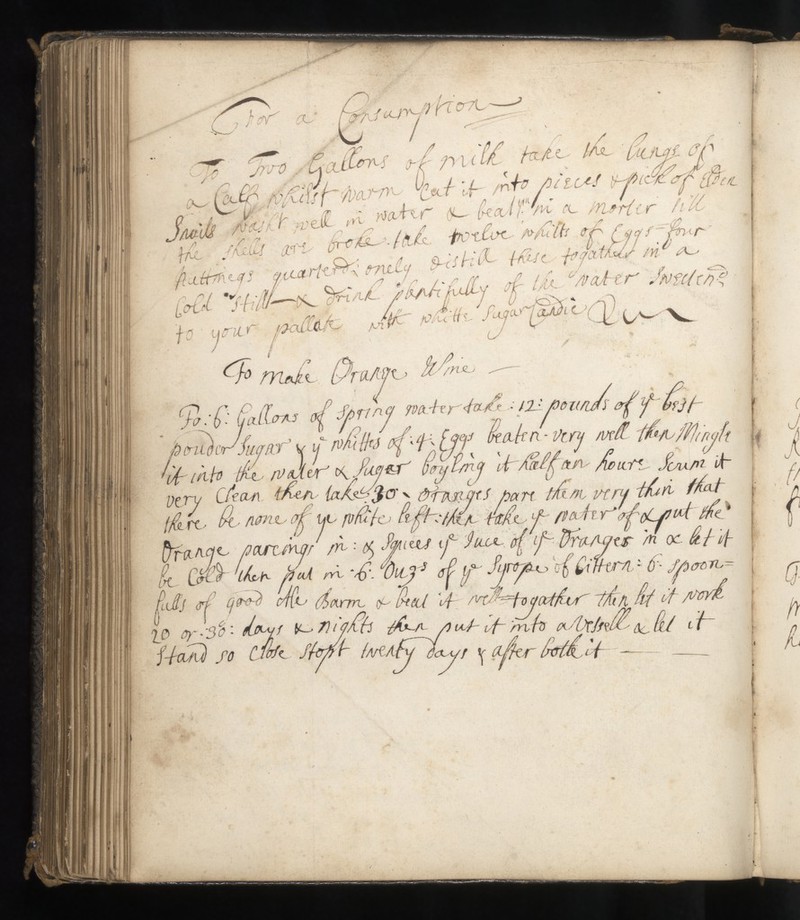 For a Consumption
To Two Gallons of milk take the lungs of
a Calf whilst warm Cut it into pieces & pick of Elder
Snails washt well in water & beat ym in a morter till
the shells are broke. take twelve whitts of Eggs four
Nuttmegs quarterd: onely distill these togather in a
Cold Still & drink plentifully of the water Sweetend
to your pallate with whitte Sugar Candie
To make Orange Wine
To: 6: Gallons of Spring water take: 12: pounds of ye best
pouder Sugar & ye whittes of: 4: Eggs beaten very well then Mingle
it into the water & Suger boyling it half an houre Scum it
very Clean then take 30 oranges pare them very thin that
there be none of ye white left: then take ye water of & put the
Orange pareings in: & Squees ye Juce of ye Oranges in & let it
be Cold then put in 6: of ye Syrope of Cittern: 6: spoon=
fulls of good Ale Barm & beat it well togather then let it work
20 or: 30: days & nights then put it into a vessell & let it
Stand so Close Stopt twenty days & after bottle it